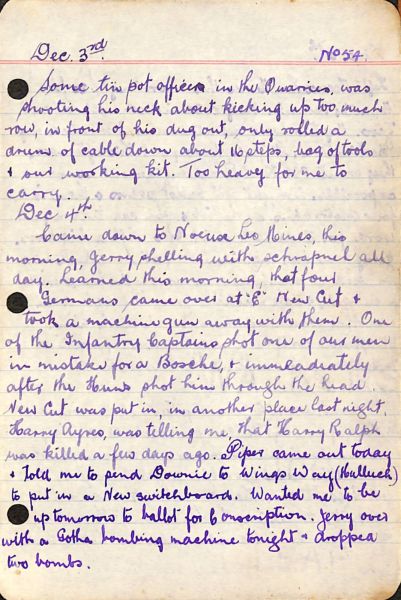 Dec. 3rd. No 54.
Some tin pot officer in the Quarries, was
shooting his neck about kicking up too much
row, in front of his dug out, only rolled a
drum of cable down about 16 steps, bag of tools
& our working kit. Too heavy for me to
carry.
Dec 4th.
Came down to Noeux les Mines, this
morning, Jerry shelling with schrapnel all
day. Learned this morning, that four
Germans came over at "E" New Cut &
took a machine gun away with them. One
of the Infantry Captains shot one of our men
in mistake for a Bosche, & immeadiately
after the Huns shot him through the head.
New Cut was put in, in another place last night.
Harry Ayres, was telling me that Harry Ralph
was killed a few days ago. Piper came out today
& told me to send Downie to Wings Way (Hulluch)
to put in a New switchboard. Wanted me to be
up tomorrow to ballot for Conscription. Jerry over
with a Gotha bombing machine tonight & dropped
two bombs.